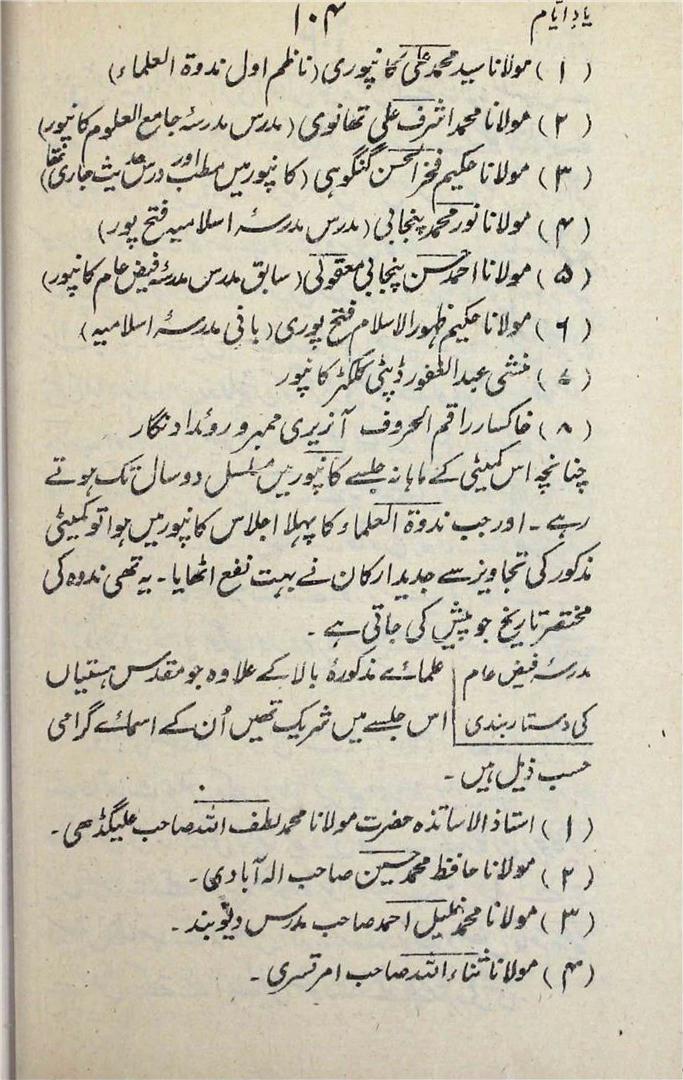 یادِ ایّام
۱۰۴
(۱) مولانا سید محمد علی کانپوری (ناظم اول ندوۃ العلماء)
(۲) مولانا محمد اشرف علی تھانوی (مدرس مدرسۂ جامع العلوم کانپور)
(۳) مولانا حکیم فخر الحسن گنگوہی (کانپور میں مطب اور درس حدیث جاری تھا)
(۴) مولانا نور محمد پنجابی (مدرس مدرسۂ اسلامیہ فتح پور)
(۵) مولانا احمد حسن پنجابی معقولی (سابق مدرس مدرسۂ فیض عام کانپور)
(۶) مولانا حکیم ظہور الاسلام فتح پوری (بانی مدرسۂ اسلامیہ)
(۷) منشی عبد الغفور ڈپٹی کلکٹر کانپور
(۸) خاکسار راقم الحروف آنریری ممبر و روئداد نگار
چنانچہ اس کمیٹی کے ماہانہ جلسے کانپور میں مسلسل دو سال تک ہوتے
رہے ۔ اور جب ندوۃ العلماء کا پہلا اجلاس کانپور میں ہوا تو کمیٹی
مذکور کی تجاویز سے جدید ارکان نے بہت نفع اٹھایا ۔ یہ تھی ندوہ کی
مختصر تاریخ جو پیش کی جاتی ہے ۔
مدرسۂ فیض عام
کی دستار بندی
علمائے مذکورۂ بالا کے علاوہ جو مقدس ہستیاں
اس جلسے میں شریک تھیں اُن کے اسمائے گرامی
حسب ذیل ہیں ۔
(۱) استاذ الاساتذہ حضرت مولانا محمد لطف اللہ صاحب علیگڈھی ۔
(۲) مولانا حافظ محمد حسین صاحب الہ آبادی ۔
(۳) مولانا محمد خلیل احمد صاحب مدرس دیوبند ۔
(۴) مولانا ثناء اللہ صاحب امرتسری ۔